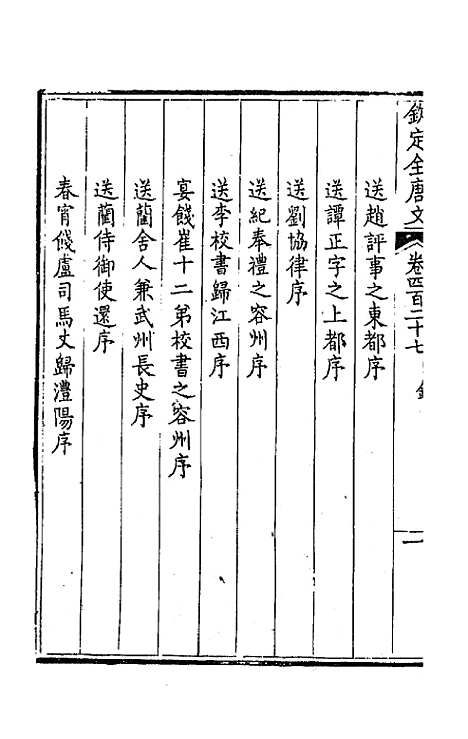 欽定全唐文 卷四百二十七
二
送趙評事之東都序
送譚正字之上都序
送劉協律序
送紀奉禮之容州序
送李校書歸江西序
宴餞崔十二弟校書之容州序
送藺舍人兼武州長史序
送藺侍御使還序
春宵餞盧司馬丈歸澧陽序